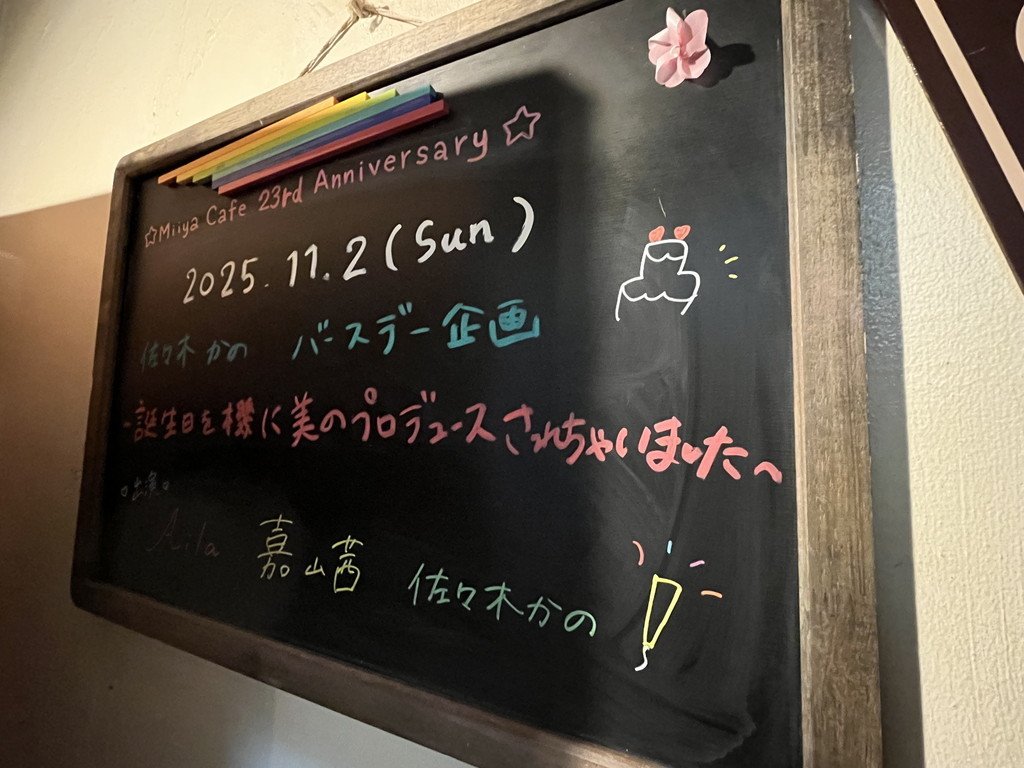 ☆Miiya Cafe 23rd Anniversary☆
2025.11.2(Sun)
佐々木かの バースデー企画
-誕生日を機に美のプロデュースされちゃいました～
○出演○
Aila 嘉山茜 佐々木かの